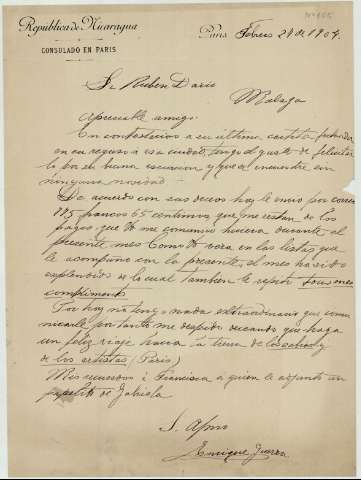 República de Nicaragua
CONSULADO EN PARIS
Paris Febrero 24 de 1904.
Sr Ruben Dario
Malaga
Apreciable amigo:
En contestación a su última cartita, fechada
en su regreso a esa ciudad, tengo el gusto de felicitar
lo por su buena excursion y que se encuentre sin
ninguna novedad.
De acuerdo con sus deseos hoy le envio por correo
francos 65 centimos que me restan de los
pagos que Vd me comunicó hiciera durante el
presente mes. Como Vd vera en las listas que
le acompaño con la presente, el mes ha sido
esplendido de lo cual tambien le repito tous mes
compliments
Por hoy no tengo nada extraordinario que comu
nicarle por tanto me despido deseando que haga
un feliz viaje hacia la tierra de
de los artistas (Paris)
Mis recuerdos á Francisca a quien le adjunto un
papelito de Gabriela
S. Afmo
Enrique